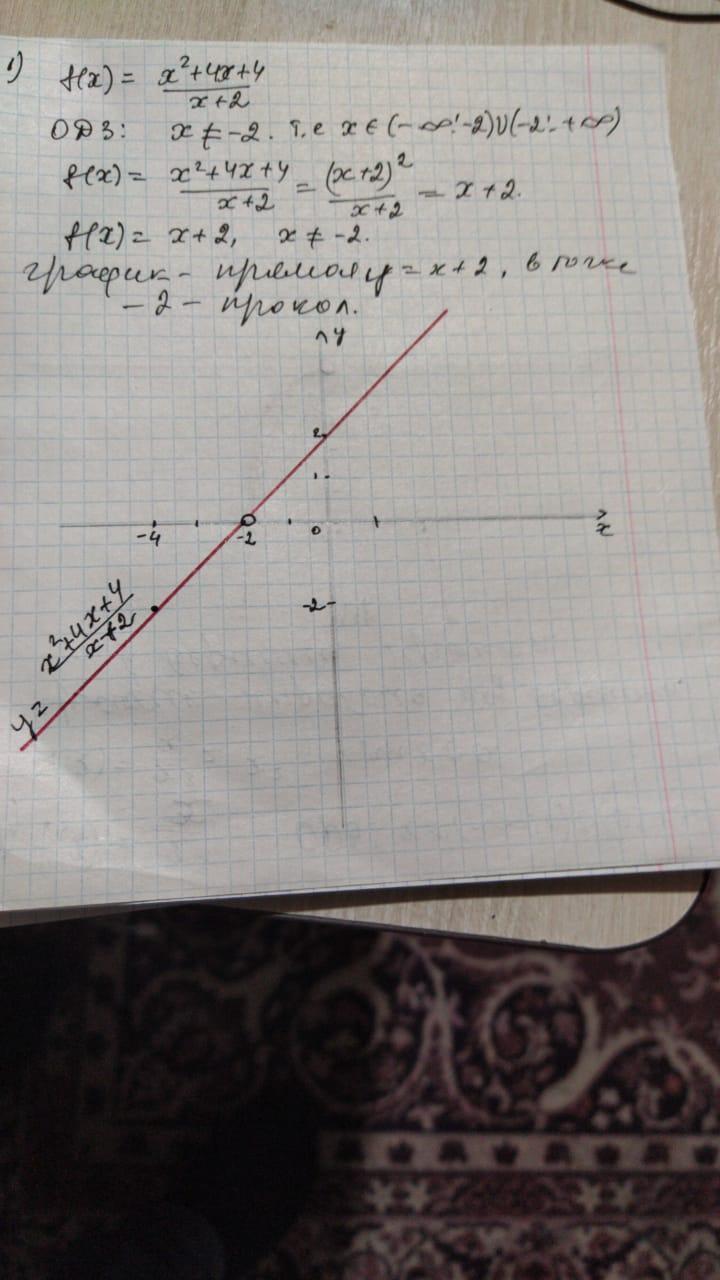 1) f(x) = x²+4x+4 / x+2
ОДЗ: x ≠ -2. т.е x ∈ (-∞; -2)∪(-2; +∞)
f(x) = x²+4x+4 / x+2 = (x+2)² / x+2 = x+2.
f(x) = x+2, x ≠ -2.
график - прямая y = x+2, в точке
-2 - прокол.
y
2
1
-4 -2 0 x
-2
y = x²+4x+4 / x+2